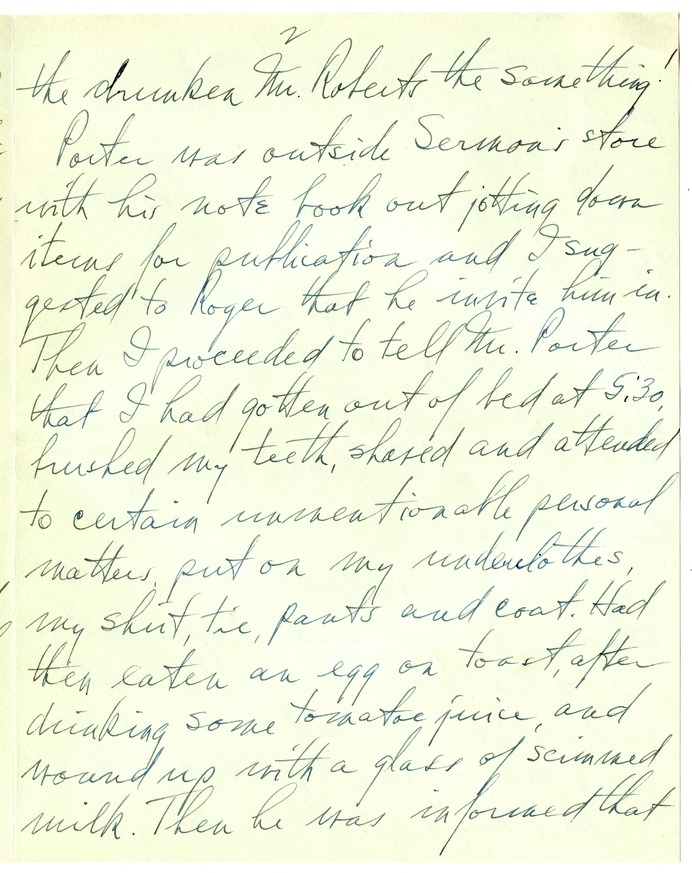 2
the drunken Mr. Roberts the something!
Porter was outside Sermon's store
with his note book out jotting down
items for publication and I sug-
gested to Roger that he invite him in.
Then I proceeded to tell Mr. Porter
that I had gotten out of bed at 5:30,
brushed my teeth, shaved and attended
to certain unmentionable personal
matters, put on my underclothes,
my shirt, tie, pants and coat. Had
then eaten an egg on toast, after
drinking some tomatoe juice, and
wound up with a glass of scimmed
milk. Then he was informed that